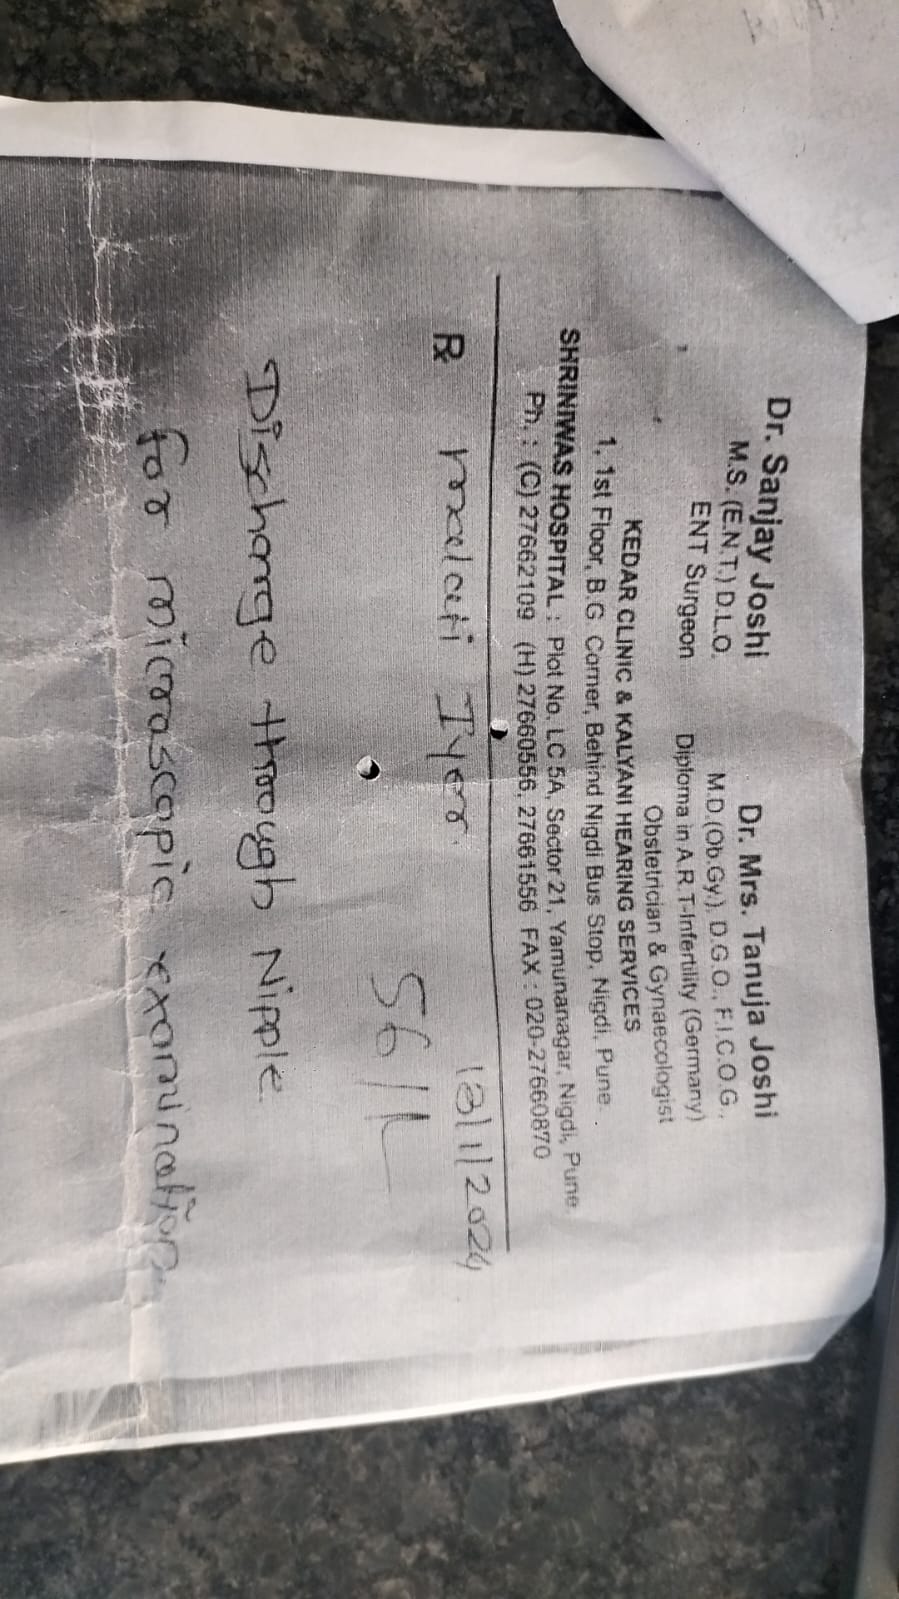 Dr. Sanjay Joshi
M.S. (E.N.T.) D.L.O.
ENT Surgeon
Dr. Mrs. Tanuja Joshi
M.D.(Ob.Gy.), D.G.O., F.I.C.O.G.,
Diploma in A.R.T-Infertility (Germany)
Obstetrician & Gynaecologist
KEDAR CLINIC & KALYANI HEARING SERVICES
1, 1st Floor, B.G. Corner, Behind Nigdi Bus Stop, Nigdi, Pune.
SHRINIWAS HOSPITAL : Plot No. LC 5A, Sector 21, Yamunanagar, Nigdi, Pune.
Ph. : (C) 27662109 (H) 27660556, 27661556 FAX : 020-27660870
℞ malati Iyer. 18/1/2024
56/
Discharge through Nipple
for microscopic examination.